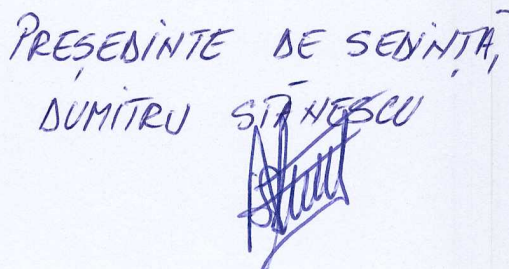 PREȘEDINTE DE SEDINȚĂ,
DUMITRU STĂNESCU